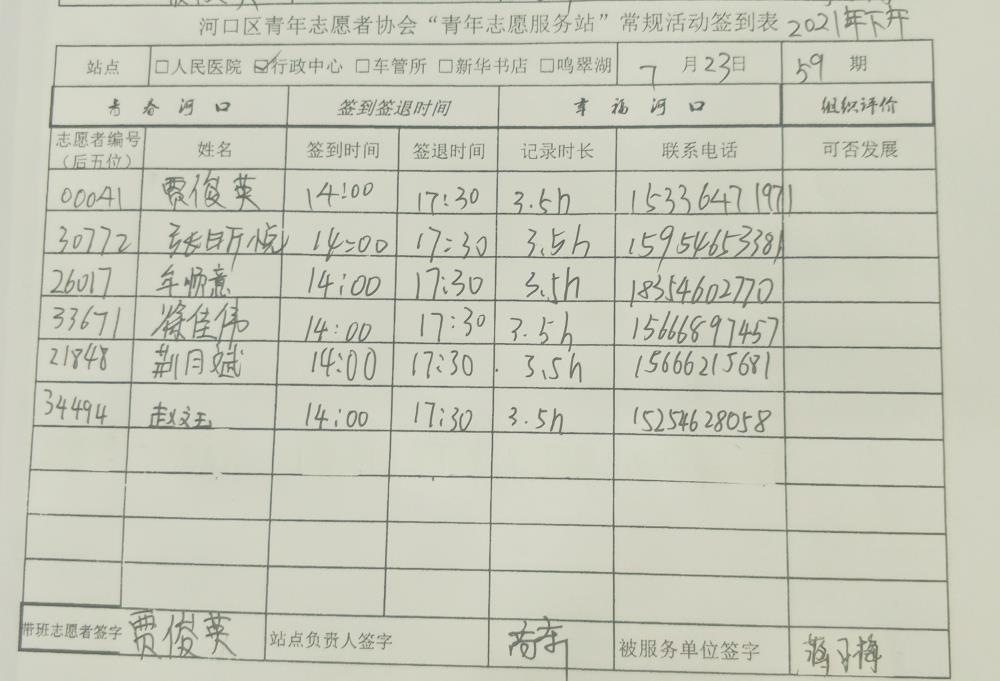 河口区青年志愿者协会“青年志愿服务站”常规活动签到表 2021年下午
站点 □人民医院 ☑行政中心 □车管所 □新华书店 □鸣翠湖 7月23日 59期
青春河口 签到签退时间 幸福河口 组织评价
志愿者编号（后五位） 姓名 签到时间 签退时间 记录时长 联系电话 可否发展
00041 贾俊英 14:00 17:30 3.5h 15336471971
30772 张昕悦 14:00 17:30 3.5h 15954653381
26017 牟顺意 14:00 17:30 3.5h 18354602770
33671 徐佳伟 14:00 17:30 3.5h 15666897457
21848 荆月斌 14:00 17:30 3.5h 15666215681
34494 赵文玉 14:00 17:30 3.5h 15254628058
带班志愿者签字 贾俊英 站点负责人签字 被服务单位签字